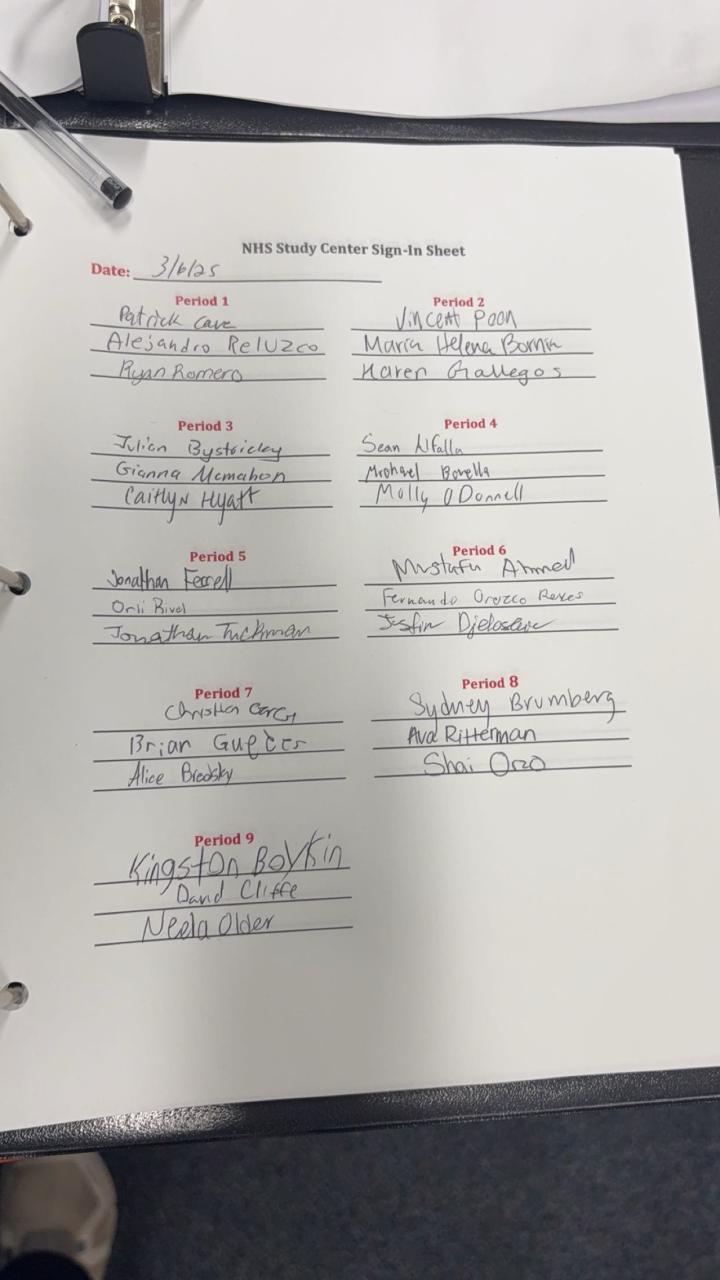 NHS Study Center Sign-In Sheet
Date: 3/6/25
Period 1
Patrick Cave
Alejandro Reluzco
Ryan Romero
Period 2
Vincent Poon
Maria Helena
Karen Gallegos
Period 3
Julien Bystricky
Gianna Mcmahon
Caitlyn Hyatt
Period 4
Sean
Michael Borella
Molly O Donnell
Period 5
Jonathan Ferrell
Orli
Jonathan Tuckman
Period 6
Mustafa Ahmed
Fernando Orozco Reyes
Justin
Period 7
Christian
Brian
Alice
Period 8
Sydney Brumberg
Ava Ritterman
Shai Orzo
Period 9
Kingston Boykin
David Cliffe
Neela Older